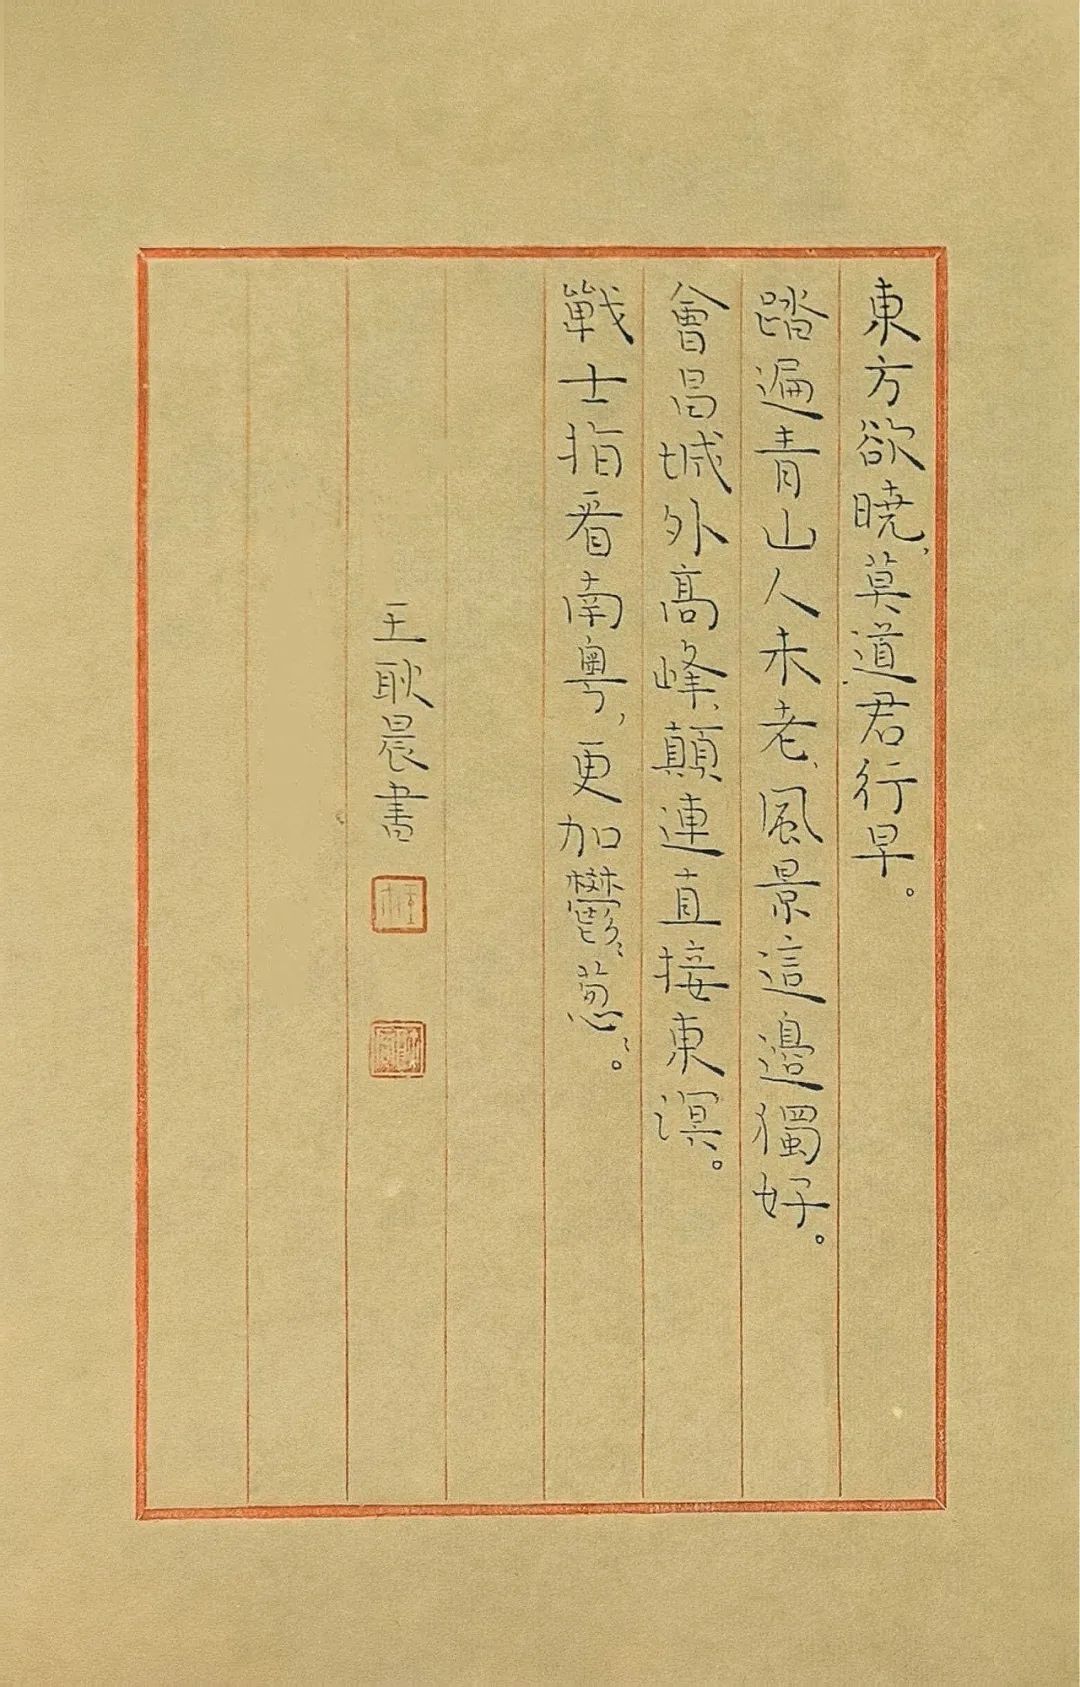 東方欲曉，莫道君行早。
踏遍青山人未老，風景這邊獨好。
會昌城外高峰，顛連直接東溟。
戰士指看南粵，更加鬱鬱葱葱。
王耿晨書